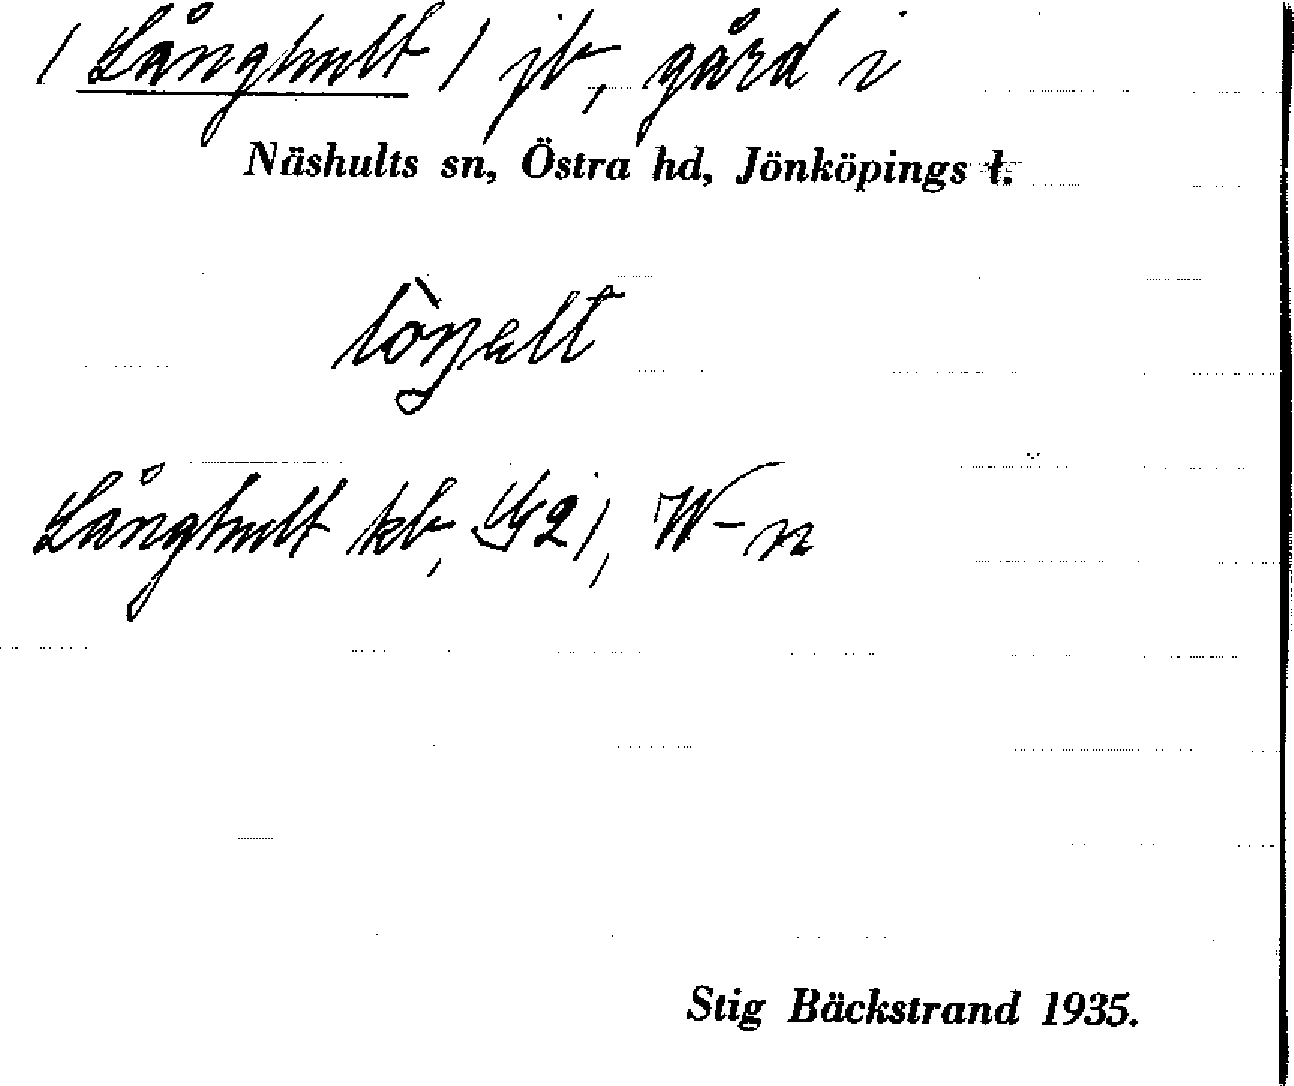 / Långhult / jb, gård i
Näshults sn, Östra hd, Jönköpings l.
lòŋult
Långhult kb, W-n
Stig Bäckstrand 1935.